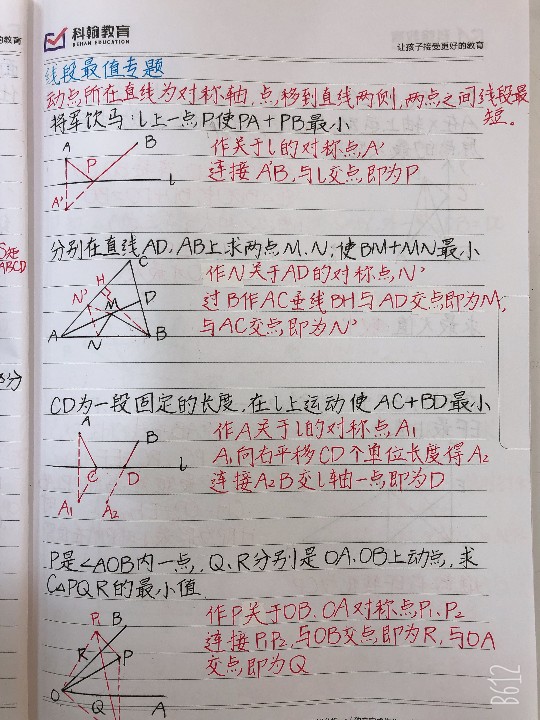 教育
科翰教育
BEHAN EDUCATION
让孩子接受更好的教育
线段最值专题
动点所在直线为对称轴,点,移到直线两侧,两点之间线段最
短。
将军饮马:l上一点P,使PA+PB最小
作关于l的对称点A'
连接A'B,与l交点即为P
A
B
P
l
A'
分别在直线AD,AB上求两点M.N,使BM+MN最小
作N关于AD的对称点N'
过B作AC垂线BH与AD交点即为M,
与AC交点即为N'
C
H
N'
D
M
A
N
B
ABCD
CD为一段固定的长度,在l上运动使AC+BD最小
作A关于l的对称点A₁
A₁向右平移CD个单位长度得A₂
连接A₂B交l轴一点即为D
A
B
C
D
l
A₁
A₂
P是∠AOB内一点,Q、R分别是OA、OB上动点,求
C△PQR的最小值
作P关于OB、OA对称点P₁、P₂
连接P₁P₂,与OB交点即为R,与OA
交点即为Q
P₁
B
R
P
O
Q
A
B612